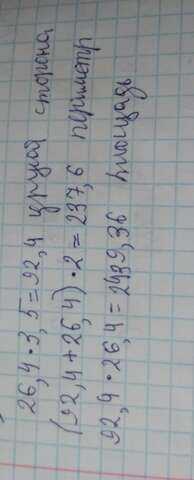 26,4·3,5=92,4 другая сторона
(92,4+26,4)·2=237,6 периметр
92,4·26,4=2439,36 площадь